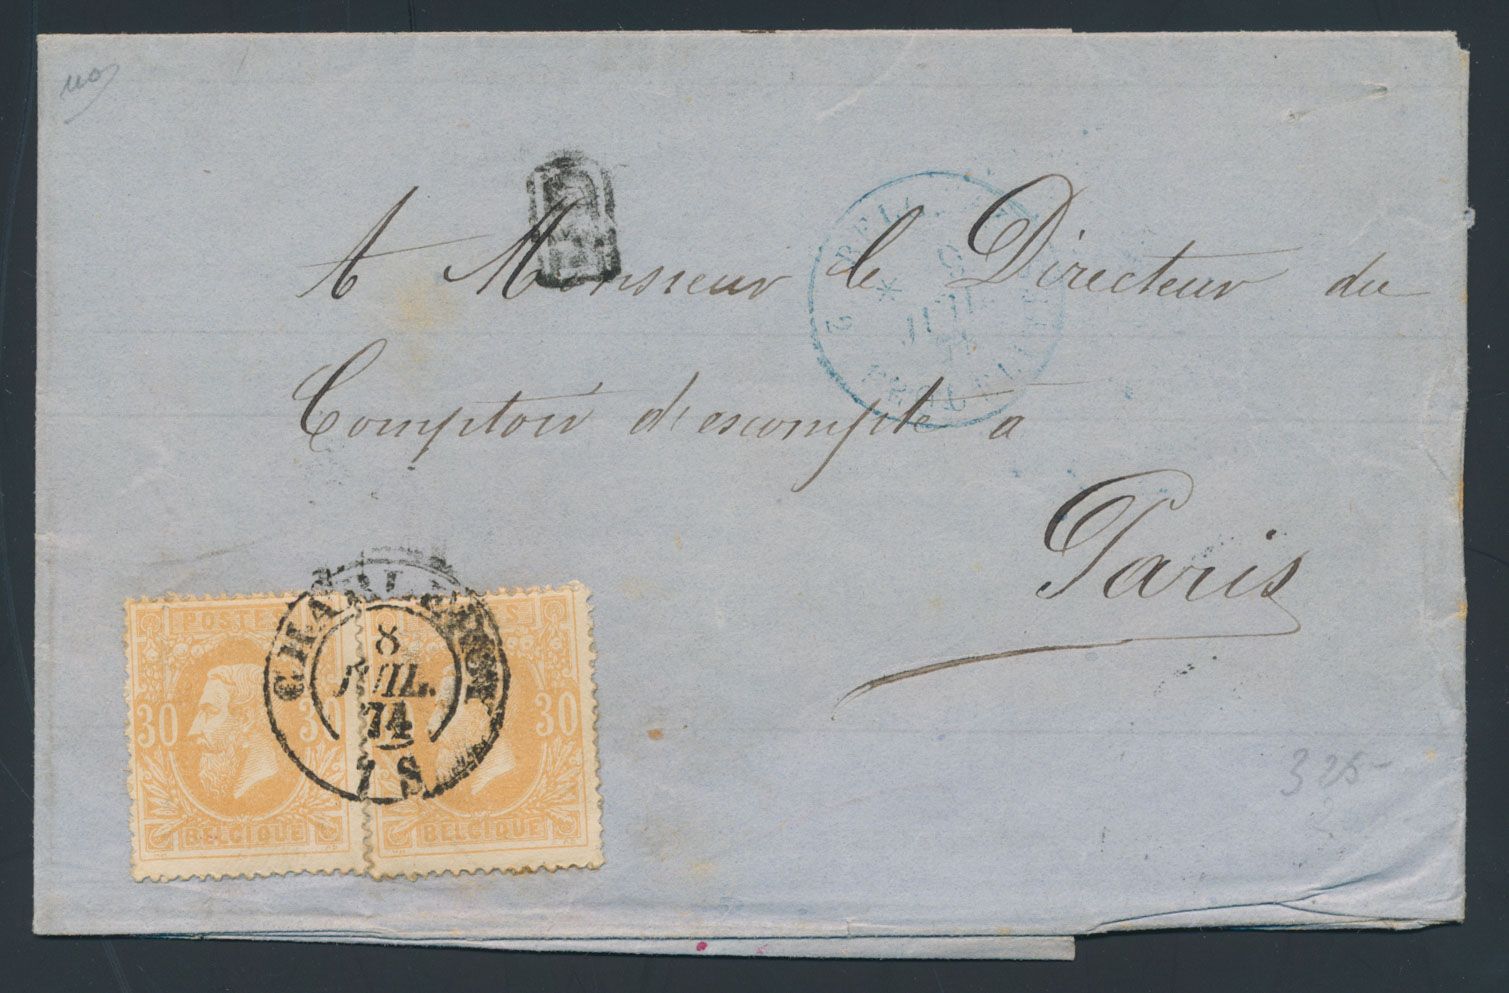 PD
A Monsieur le Directeur du
Comptoir d'escompte à
Paris
2 BELG. * ERQUELINES
9
JUIL.
74
CHARLEROI
8
JUIL.
74
7 S
POSTES
30 30
BELGIQUE
POSTES
30
BELGIQUE
325-